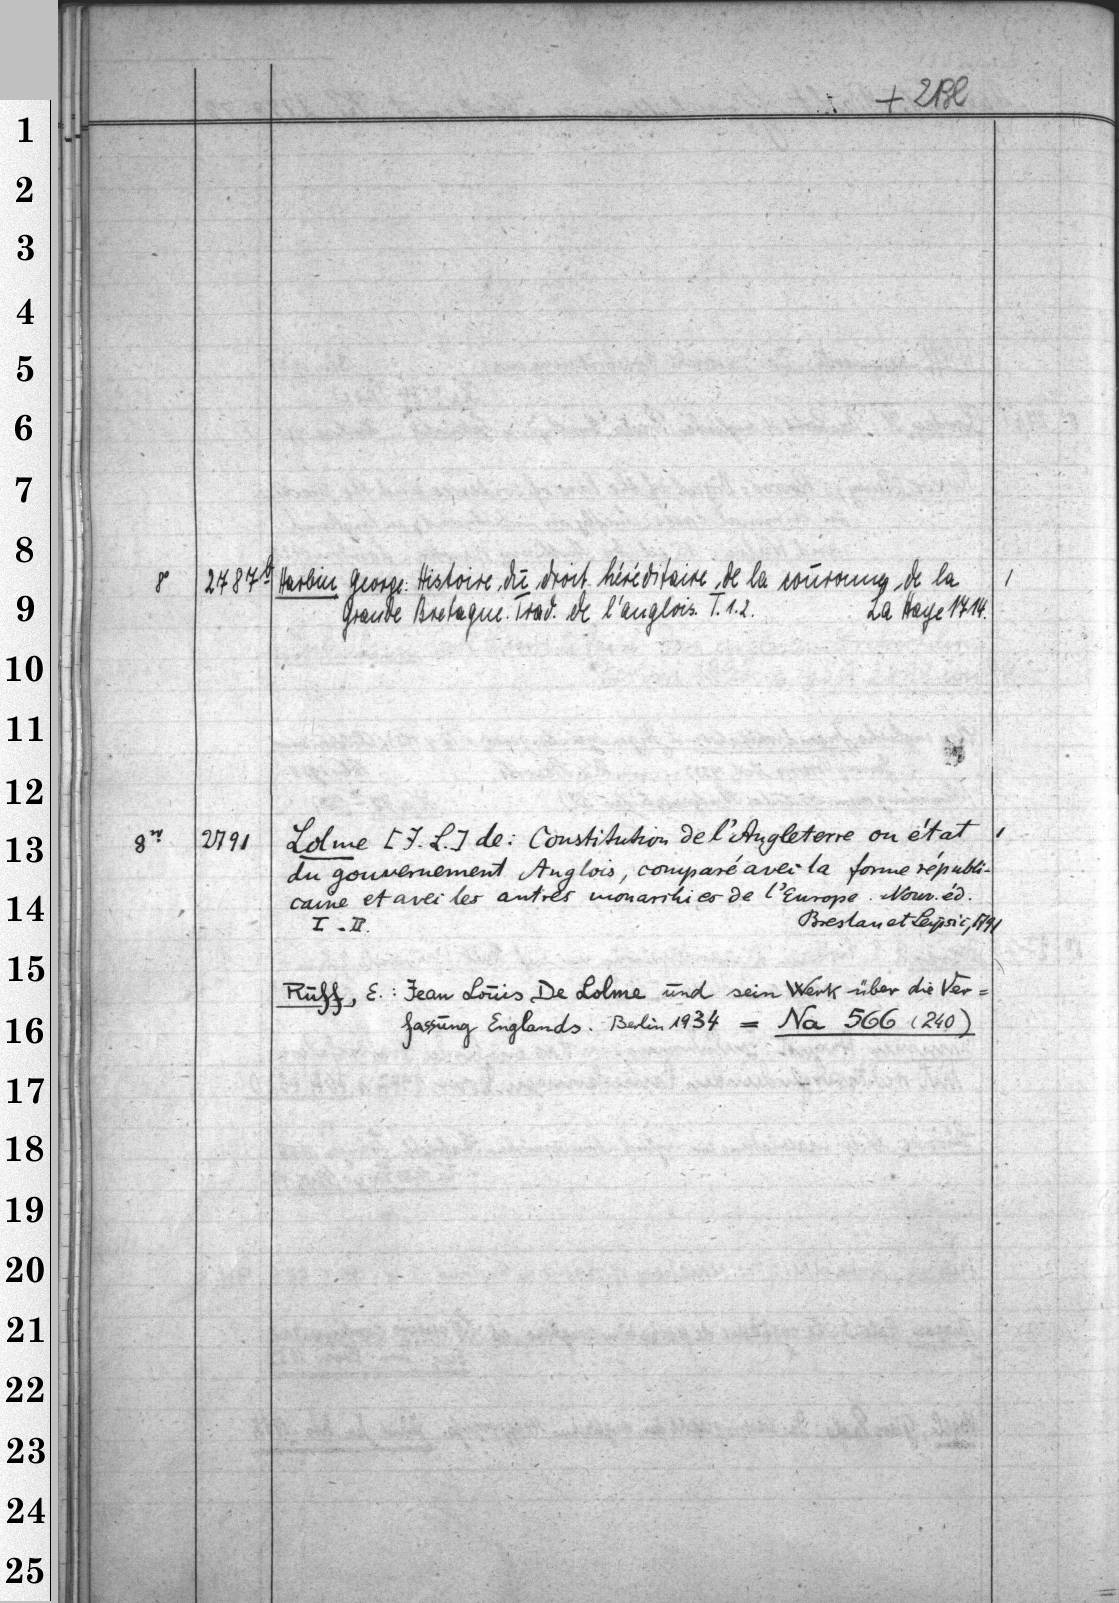 + 2Bl
1
2
3
4
5
6
7
8
8° 2787b Harbin George: Histoire du droit héréditaire de la couronne de la
9
Grande Bretagne. Trad. de l'anglois. T. 1.2. La Haye 1714.
10
11
12
13
8° 2791 Lolme [J. L.] de: Constitution de l'Angleterre ou état
du gouvernement Anglois, comparé avec la forme républi-
caine et avec les autres monarchies de l'Europe. Nouv. éd.
14
I - II. Breslau et Leipsic, 1791
15
Ruff, E.: Jean Louis De Lolme und sein Werk über die Ver=
16
fassung Englands. Berlin 1934 = Na 566 (240)
17
18
19
20
21
22
23
24
25